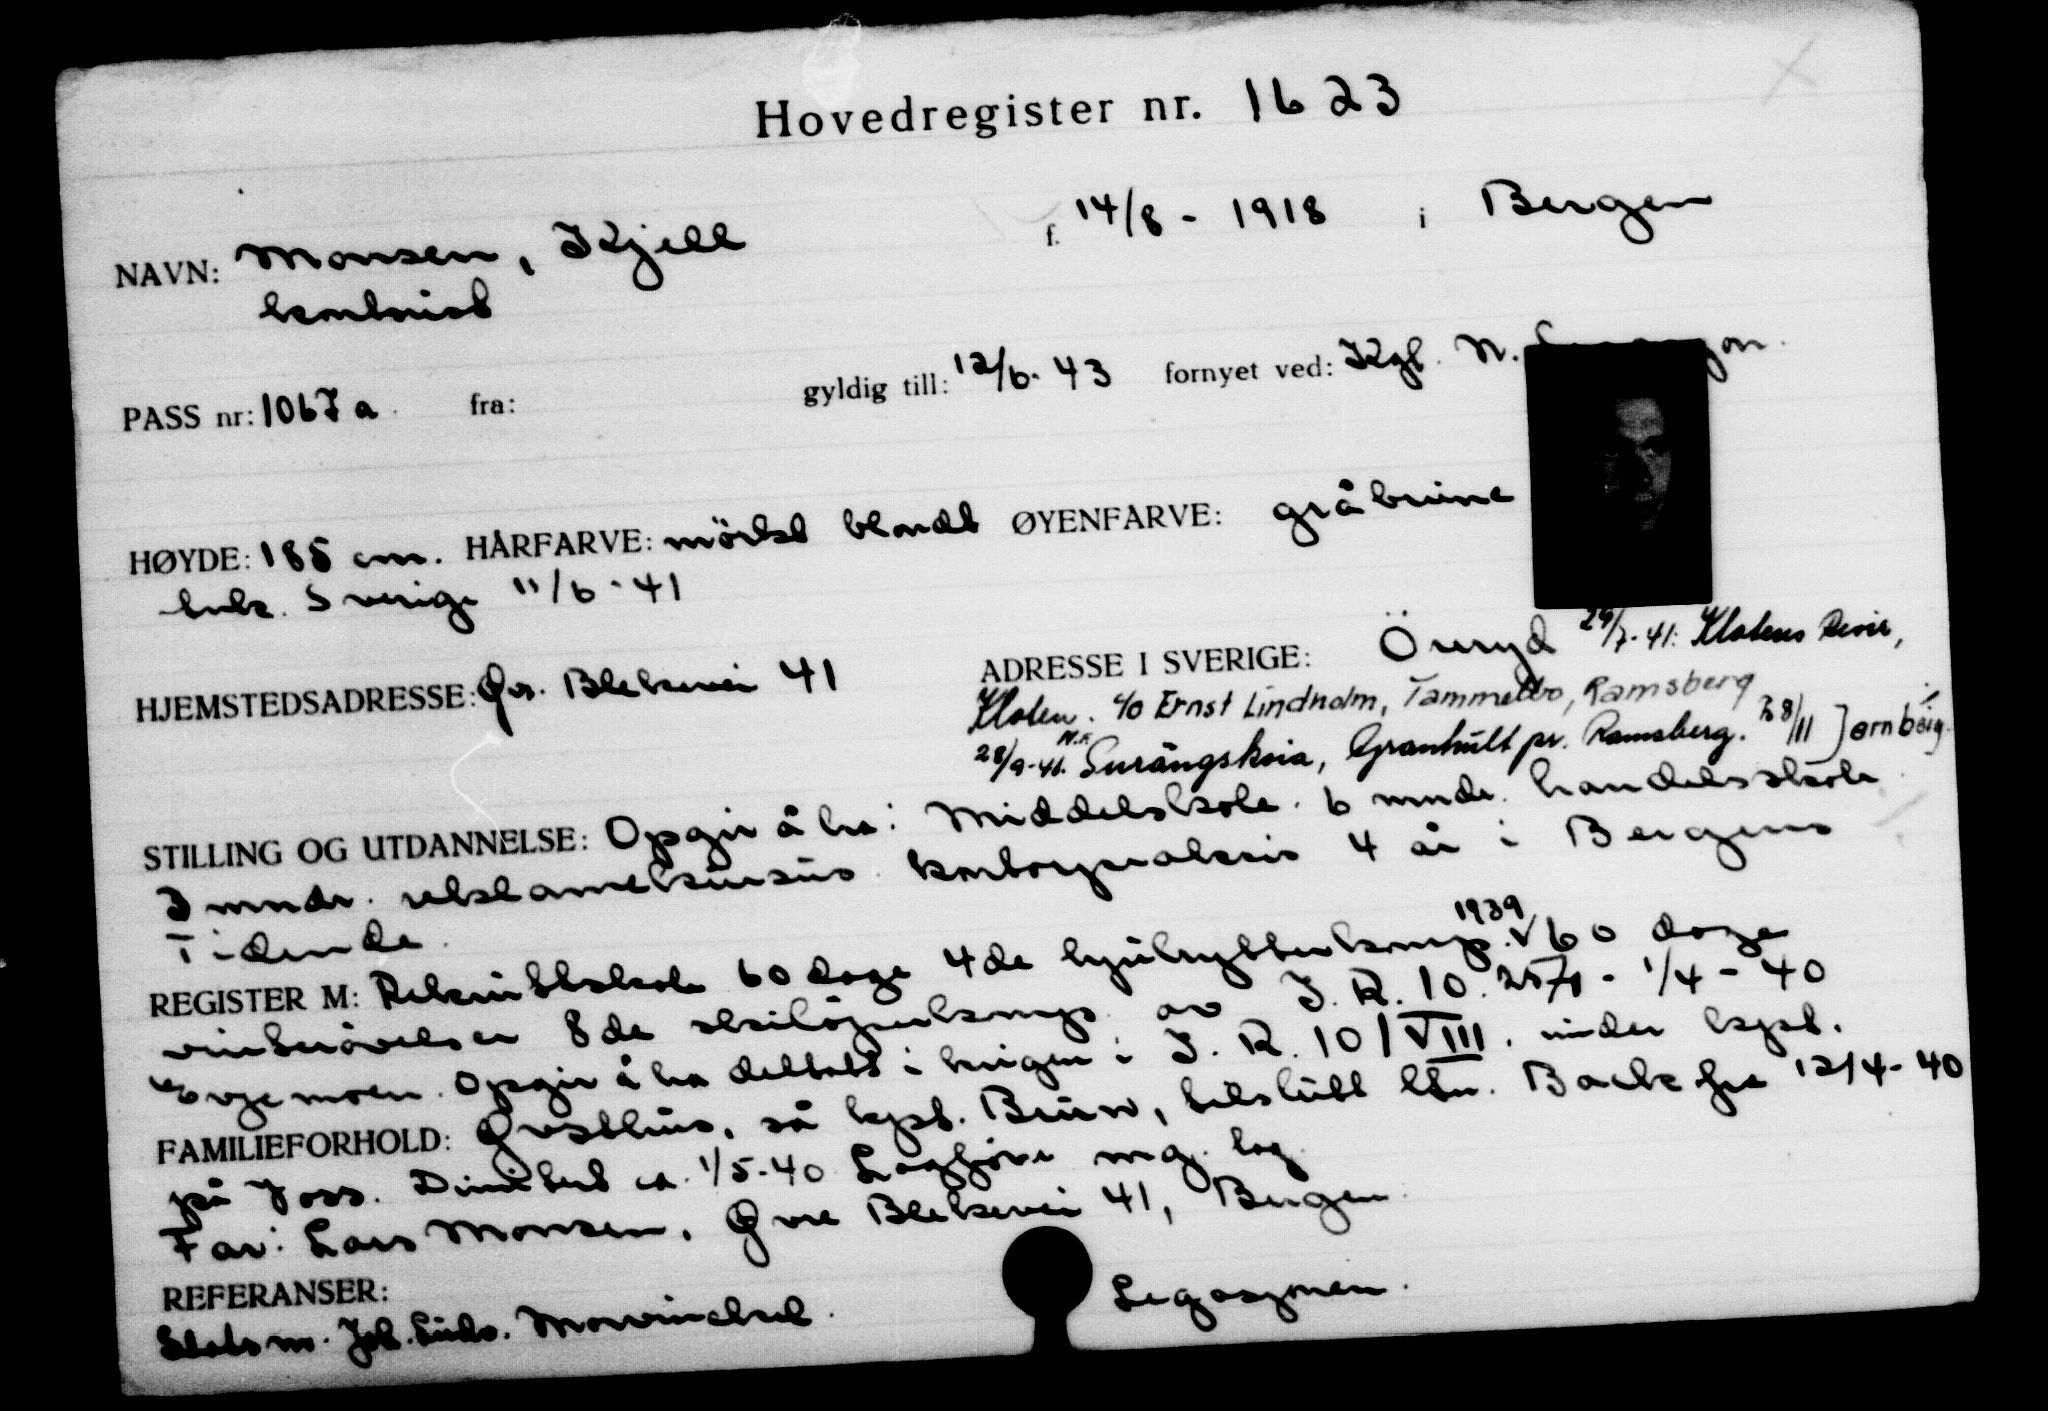 Hovedregister nr. 1623
NAVN: Monsen, Kjell f. 14/8 - 1918 i Bergen
kontorist
PASS nr: 1067a fra: gyldig till: 12/6-43 fornyet ved: Kgl. N.
HØYDE: 185 cm. HÅRFARVE: mörkt blondt ØYENFARVE: gråbrune
Sverige 11/6-41
HJEMSTEDSADRESSE: Øv. Blekevei 41 ADRESSE I SVERIGE: Öreryd 29/7-41: Klotens Revir,
Kloten. c/o Ernst Lindholm, Tammelbo, Ramsberg
28/9-41. Surängskoia, Granhult pr. Ramsberg. 8/11 Jernboig.
STILLING OG UTDANNELSE: Opgir å ha: Middelskole. 6 mndr. handelsskole
3 mndr. reklamekursus. kontorpraksis 4 år i Bergens
Tidende.
REGISTER M: Rekruttskole 60 dage 4de hjulrytterkomp. 1939 60 dage
vinterövelser 8de skilöperkomp. av I.R. 10. - 1/4-40
Evjemoen. Opgir å ha deltatt i krigen i I.R. 10/VIII. under kpt.
FAMILIEFORHOLD: Østhus, så kpt. Bruw, tilslutt ltn. Backe fra 12/4-40
på Voss. Dimitert ca. 1/5-40 Lagfører mg. lag.
Far: Lars Monsen, Øvre Blekevei 41, Bergen.
REFERANSER:
Statsm. Joh. Ludv. Mowinckel. Legasjonen.